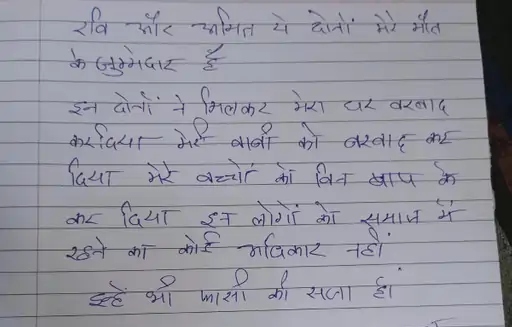 रवि और अमित ये दोनों मेरे मौत
के जुम्मेदार हैं
इन दोनों ने मिलकर मेरा घर बरबाद
करदिया मेरी बीबी को बरबाद कर
दिया मेरे बच्चों को बिन बाप के
कर दिया इन लोगों को समाज में
रहने का कोई अधिकार नहीं
इन्हें भी फासी की सजा हो